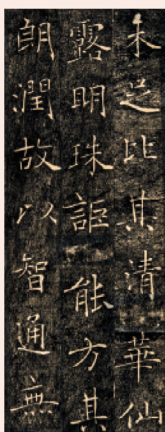 未足比其清華仙
露明珠詎能方其
朗潤故以智通無